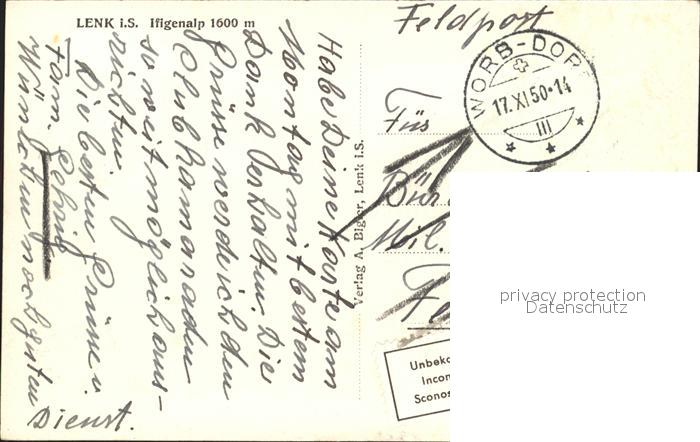 LENK i.S. Iffigenalp 1600 m
Feldpost
WORB-DORF
17.XI.50-14
III
Habe Deine Karte am
Montag mit bestem
Dank erhalten. Die
Grüsse werde ich den
Clubkameraden
so weit möglich aus-
richten.
Die besten Grüsse u.
Wünschen noch guten
Dienst.
Fam. Gehrig
Verlag A. Bigler, Lenk i.S.
Füs
Bür
Mil.
Fe
Unbeka
Incon
Sconos
privacy protection
Datenschutz